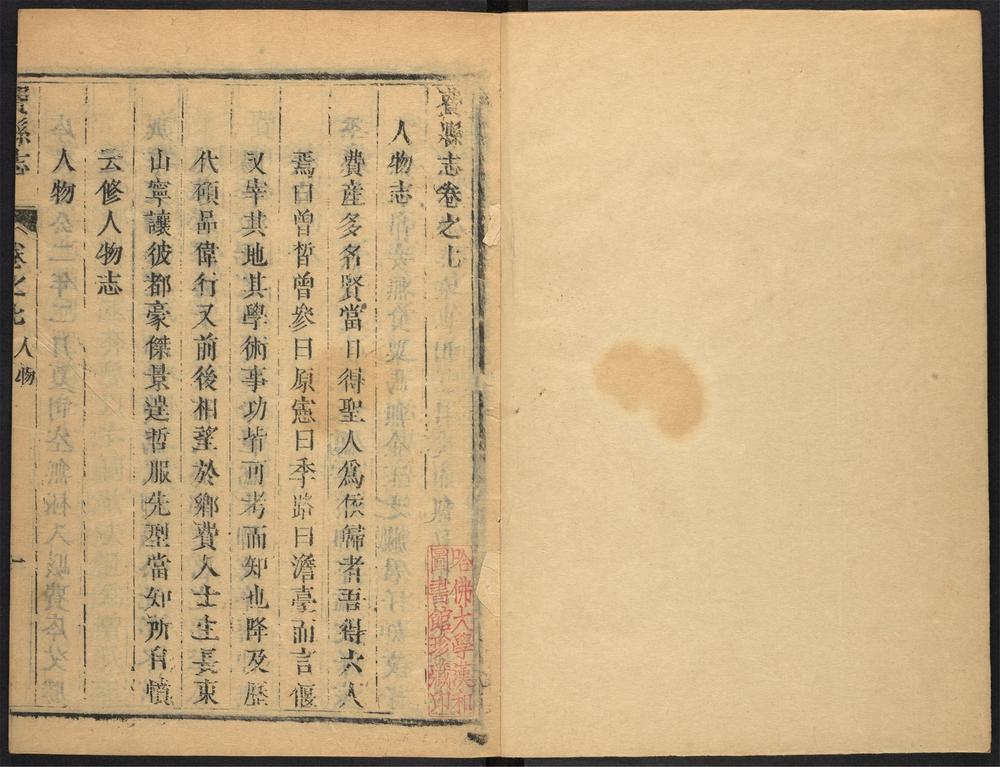 費縣志卷之七
人物志
費産多名賢當日得聖人爲依歸者吾得六人
焉曰曾晳曾參曰原憲曰季路曰澹臺而言偃
又宰其地其學術事功皆可考而知也降及歷
代碩品偉行又前後相望於鄉費人士生長東
山寧讓彼都豪傑景逹哲服先型當知所自憤
云修人物志
人物
費縣志
卷之七
人物
一
哈佛大學漢和
圖書館珍藏印